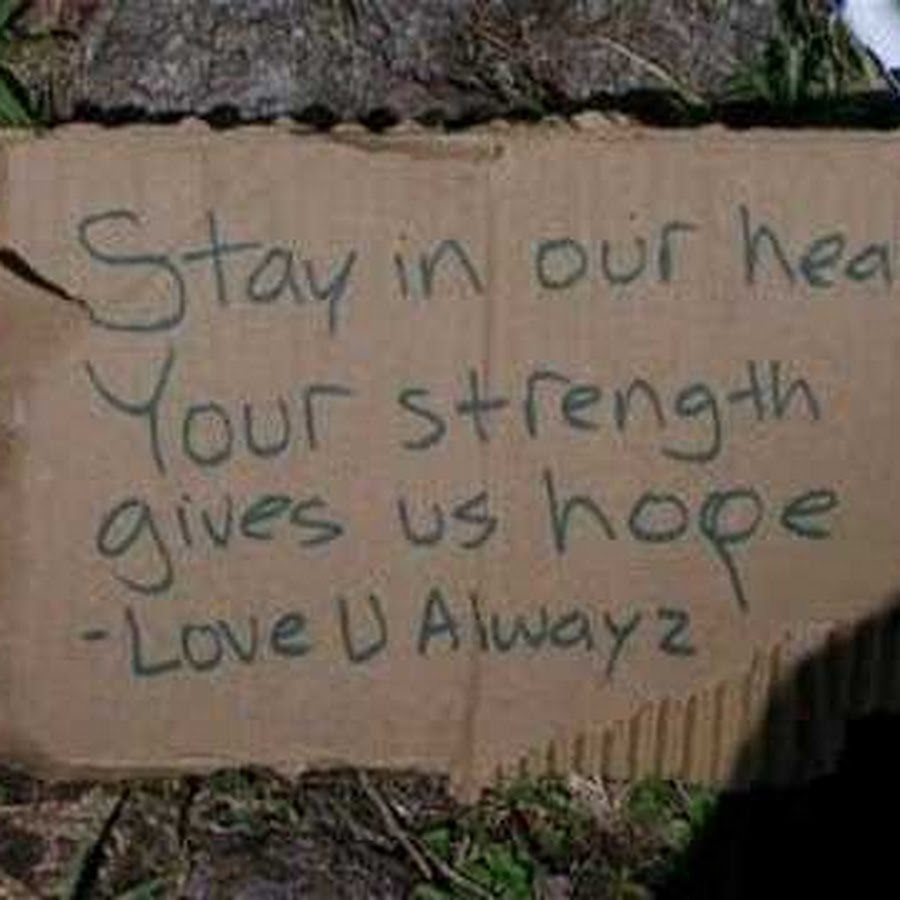 Stay in our hea
Your strength
gives us hope
-Love U Alwayz